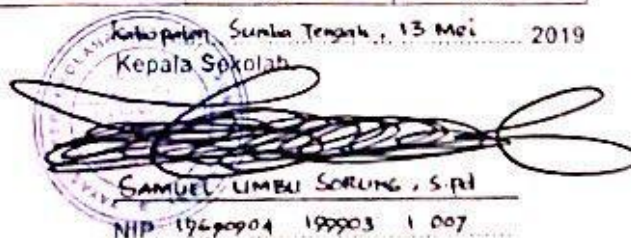 Sumba Tengah, 13 Mei 2019
Kepala Sekolah
SAMUEL UMBU SORUNG, S.Pd
NIP 19690904 199903 1 007